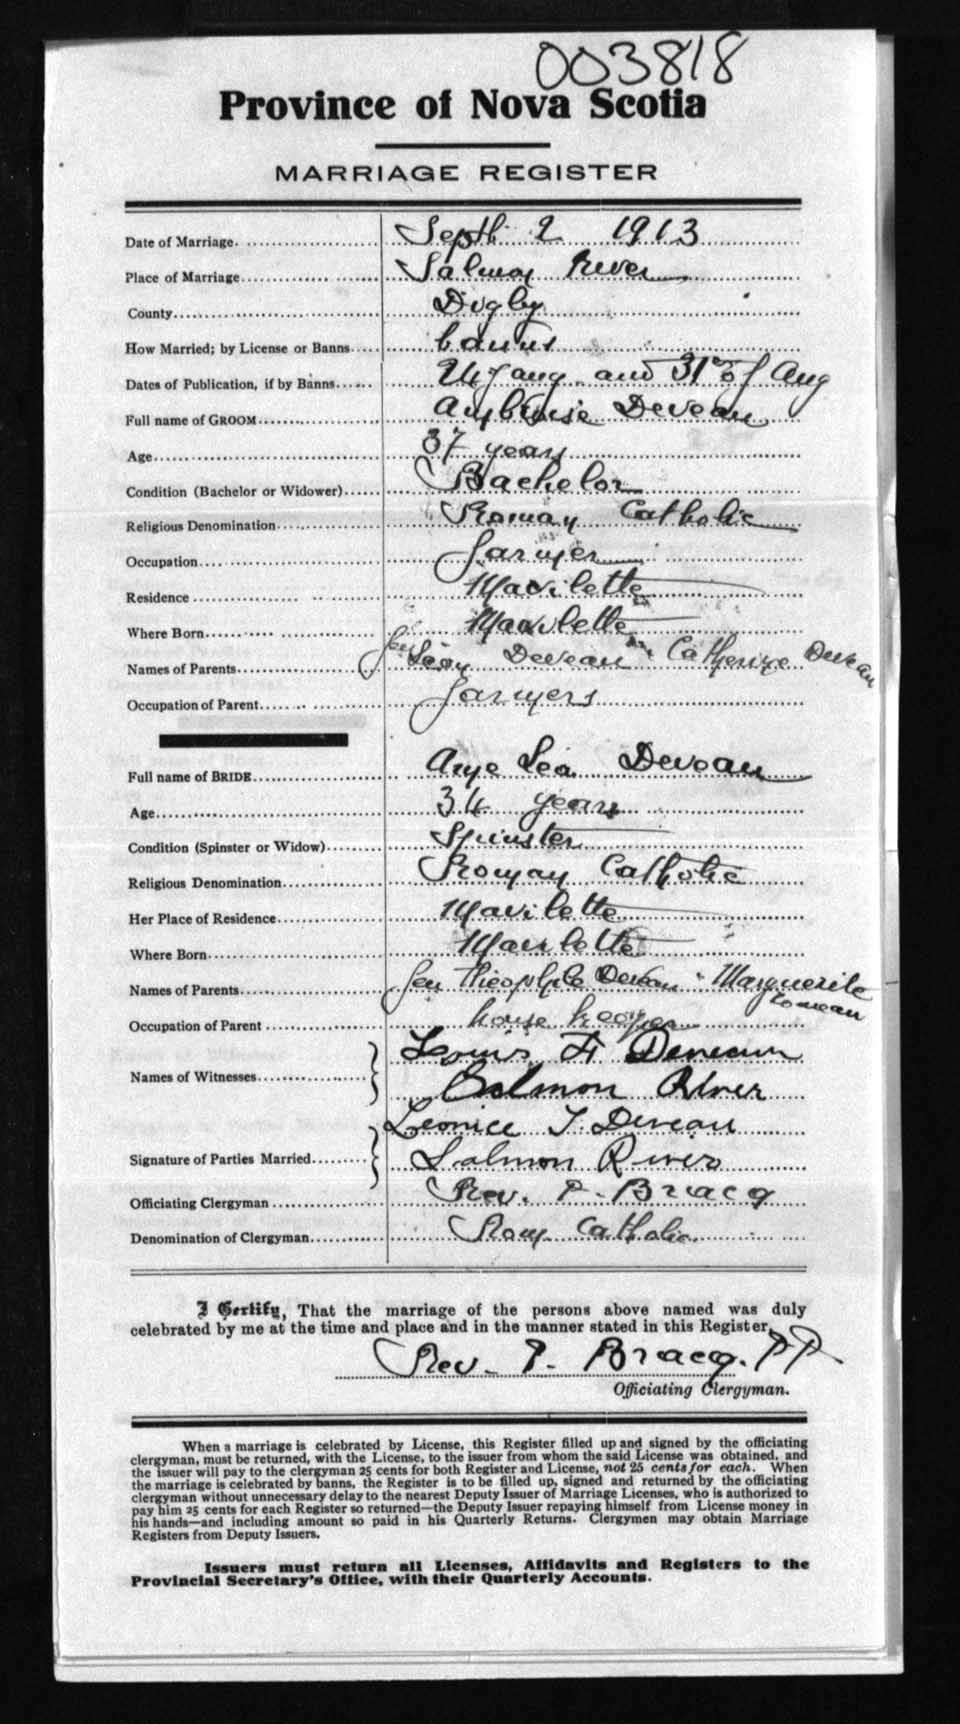 003818
Province of Nova Scotia
MARRIAGE REGISTER
Date of Marriage. Septh 2 1913
Place of Marriage Salmon River
County Digby
How Married; by License or Banns banns
Dates of Publication, if by Banns 24 of aug. and 31 of Aug
Full name of GROOM Ambroise Deveau
Age 37 years
Condition (Bachelor or Widower) Bachelor
Religious Denomination Roman Catholic
Occupation farmer
Residence Mavilette
Where Born Mavilette
Names of Parents feu Léon Deveau Catherine Deveau
Occupation of Parent farmers
Full name of BRIDE Anne Léa Deveau
Age 34 years
Condition (Spinster or Widow) Spinster
Religious Denomination Roman Catholic
Her Place of Residence Mavilette
Where Born Mavilette
Names of Parents feu Théophile Deveau Marguerite Comeau
Occupation of Parent house keeper
Names of Witnesses Louis F Deveau
Salmon River
Leonice J. Deveau
Signature of Parties Married Salmon River
Officiating Clergyman Rev. P. Bracq
Denomination of Clergyman Rom. Catholic
I Certify, That the marriage of the persons above named was duly
celebrated by me at the time and place and in the manner stated in this Register.
Rev. P. Bracq. PP.
Officiating Clergyman.
When a marriage is celebrated by License, this Register filled up and signed by the officiating
clergyman, must be returned, with the License, to the issuer from whom the said License was obtained, and
the issuer will pay to the clergyman 25 cents for both Register and License, not 25 cents for each. When
the marriage is celebrated by banns, the Register is to be filled up, signed and returned by the officiating
clergyman without unnecessary delay to the nearest Deputy Issuer of Marriage Licenses, who is authorized to
pay him 25 cents for each Register so returned—the Deputy Issuer repaying himself from License money in
his hands—and including amount so paid in his Quarterly Returns. Clergymen may obtain Marriage
Registers from Deputy Issuers.
Issuers must return all Licenses, Affidavits and Registers to the
Provincial Secretary's Office, with their Quarterly Accounts.